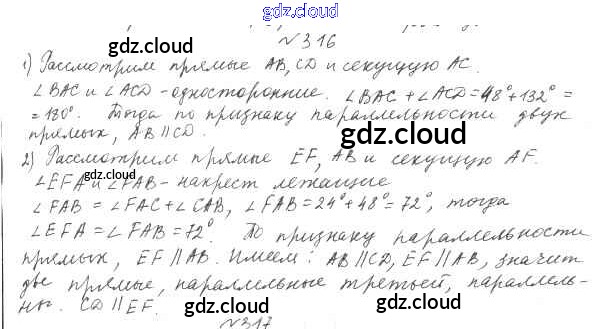 gdz.cloud
№316
gdz.cloud
1) Рассмотрим прямые AB, CD и секущую AC.
∠BAC и ∠ACD - односторонние. ∠BAC + ∠ACD = 48° + 132° =
= 180°. Тогда по признаку параллельности двух
прямых, AB ∥ CD.
gdz.cloud
2) Рассмотрим прямые EF, AB и секущую AF.
gdz.cloud
∠EFA и ∠FAB - накрест лежащие
∠FAB = ∠FAC + ∠CAB, ∠FAB = 24° + 48° = 72°, тогда
∠EFA = ∠FAB = 72°. По признаку параллельности
gdz.cloud
прямых, EF ∥ AB. Имеем: AB ∥ CD, EF ∥ AB, значит
две прямые, параллельные третьей, параллель-
ны. CD ∥ EF.
gdz.cloud
gdz.cloud
№317